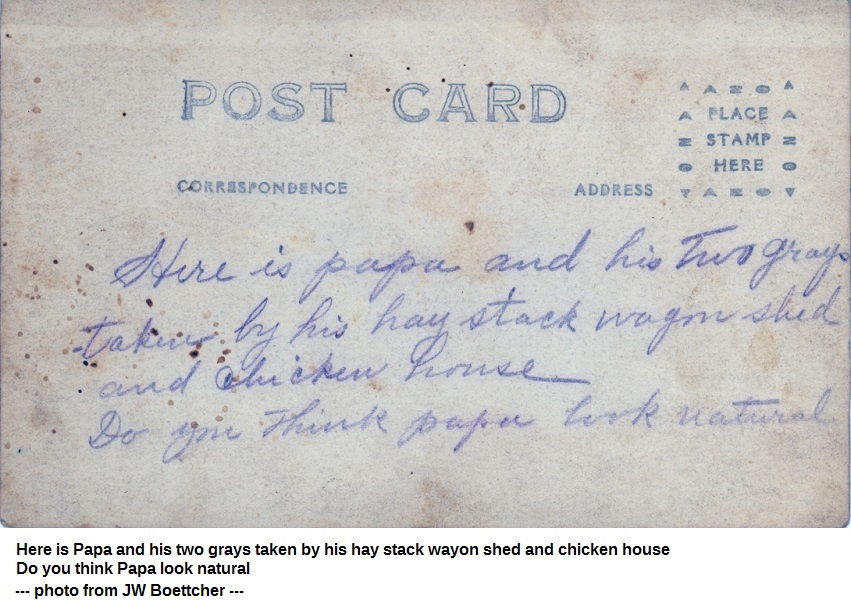 POST CARD
AZO
PLACE
STAMP
HERE
AZO
CORRESPONDENCE
ADDRESS
Here is papa and his two grays
taken by his hay stack wagon shed
and chicken house
Do you think papa look natural
Here is Papa and his two grays taken by his hay stack wayon shed and chicken house
Do you think Papa look natural
--- photo from JW Boettcher ---